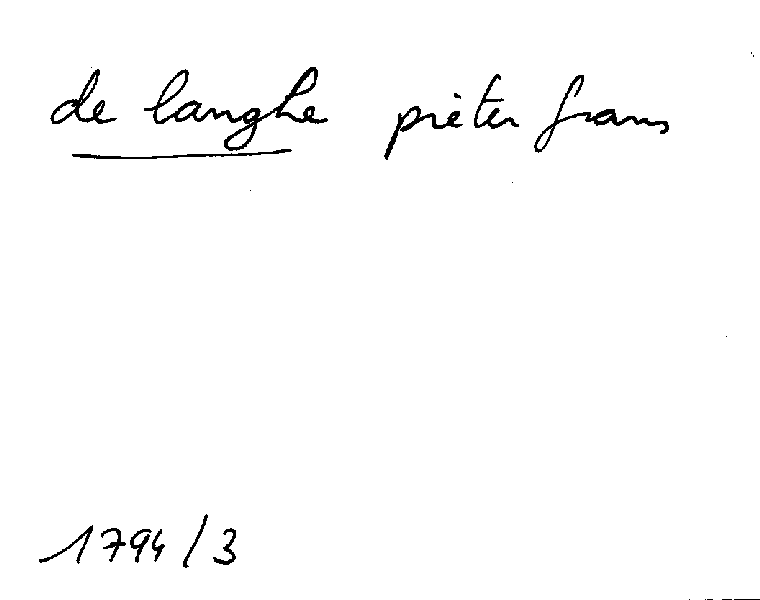 de langhe pieter frans
1794/3